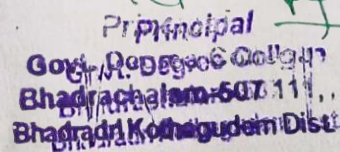 Principal
Govt. Degree College
Bhadrachalam-507 111.
Bhadradri Kothagudem Dist